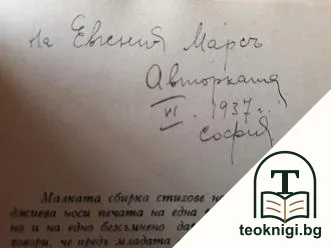 на Евгения Марсъ
Авторката
VI. 1937 г.
София
Малката сбирка стихове
джиева носи печата на една
но и на едно безсъмнено
говори, че предъ младата
T
teoknigi.bg